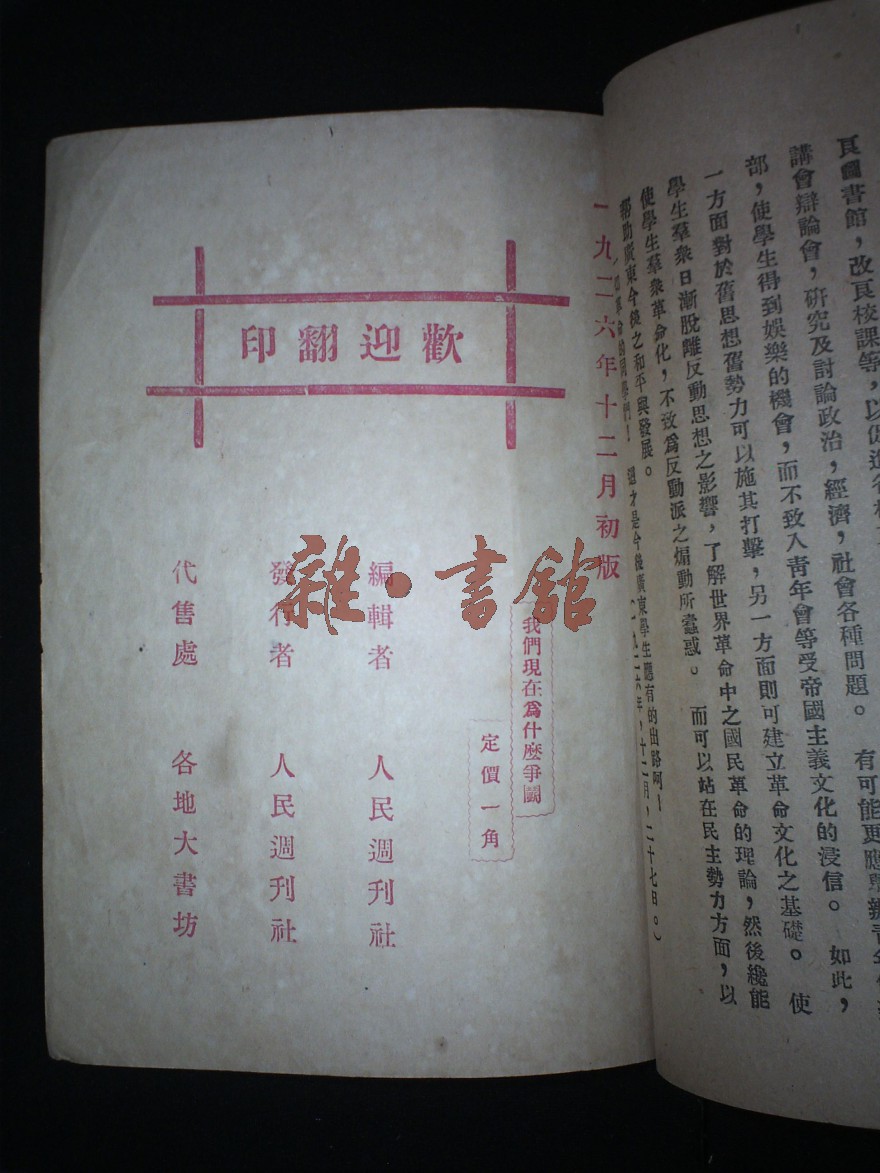 良圖書館，改良校課等，以促進各校
講會辯論會，研究及討論政治，經濟，社會各種問題。　有可能更應舉辦青年
部，使學生得到娛樂的機會，而不致入青年會等受帝國主義文化的浸信。　如此，
一方面對於舊思想舊勢力可以施其打擊，另一方面則可建立革命文化之基礎。　使
學生羣衆日漸脫離反動思想之影響，了解世界革命中之國民革命的理論，然後纔能
使學生羣衆革命化，不致爲反動派之煽動所蠱惑。　而可以站在民主勢力方面，以
帮助廣東今後之和平與發展。
革命的同學們！　這才是今後廣東學生應有的出路呵！
九二六年，十二月，二十七日。）
歡迎翻印
一九二六年十二月初版
我們現在爲什麼爭鬭
定價一角
編輯者　人民週刊社
發行者　人民週刊社
代售處　各地大書坊
雜·書館